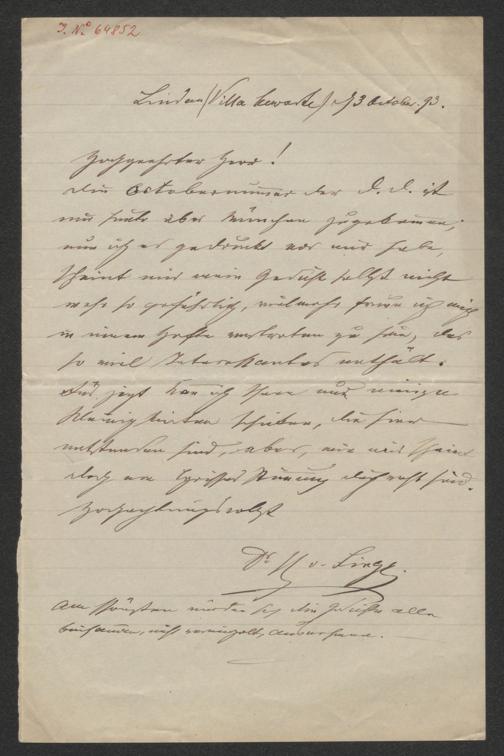 J. No 64852
Lindau (Villa Seewarte) 3 October. 93.
Hochgeehrter Herr!
Die Octobernummer der D. D. ist
mir heute über München zugekommen;
nun ich es gedruckt vor mir habe,
scheint mir mein Gedicht selbst nicht
mehr so gefährlich, vielmehr freue ich mich
in einem Hefte vertreten zu sein, das
so viel Interessantes enthält.
Für jetzt kann ich Ihnen nur einige
Kleinigkeiten schicken, die hier
entstanden sind, aber, wie mir scheint
doch von lyrischer Stimmung durchweht sind.
Hochachtungsvollst
Dr H v. Lingg.
Am schönsten würden sich die Gedichte alle
beisammen, nicht vereinzelt, ausnehmen.